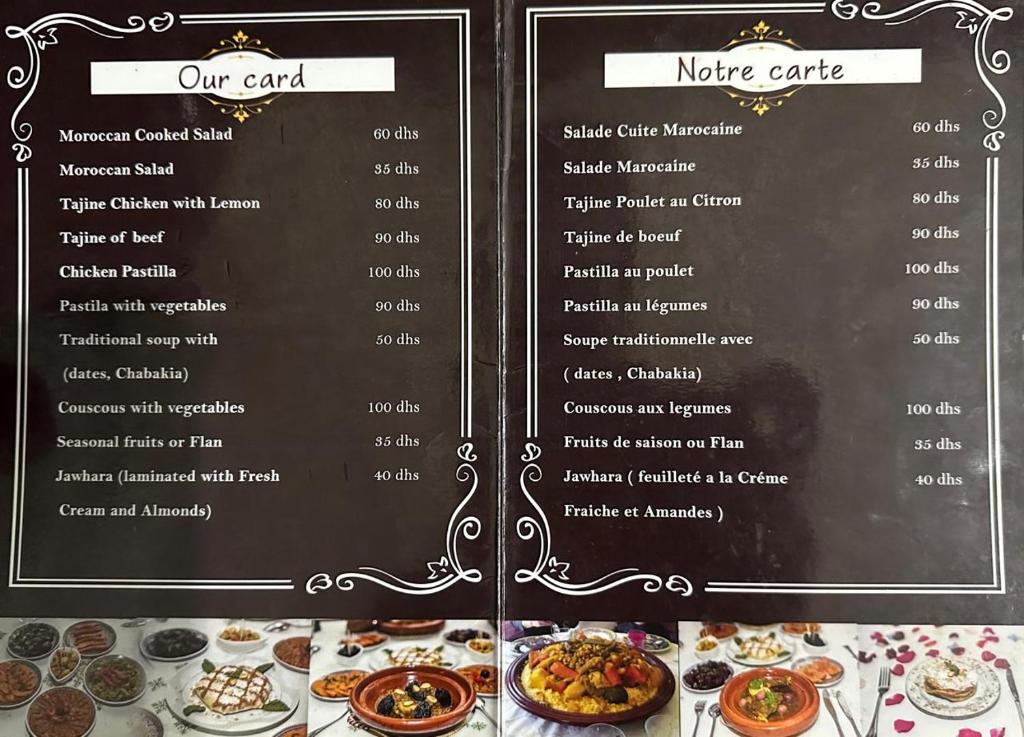 Our card
Moroccan Cooked Salad 60 dhs
Moroccan Salad 35 dhs
Tajine Chicken with Lemon 80 dhs
Tajine of beef 90 dhs
Chicken Pastilla 100 dhs
Pastila with vegetables 90 dhs
Traditional soup with 50 dhs
(dates, Chabakia)
Couscous with vegetables 100 dhs
Seasonal fruits or Flan 35 dhs
Jawhara (laminated with Fresh 40 dhs
Cream and Almonds)
Notre carte
Salade Cuite Marocaine 60 dhs
Salade Marocaine 35 dhs
Tajine Poulet au Citron 80 dhs
Tajine de boeuf 90 dhs
Pastilla au poulet 100 dhs
Pastilla au légumes 90 dhs
Soupe traditionnelle avec 50 dhs
( dates , Chabakia)
Couscous aux legumes 100 dhs
Fruits de saison ou Flan 35 dhs
Jawhara ( feuilleté a la Créme 40 dhs
Fraiche et Amandes )